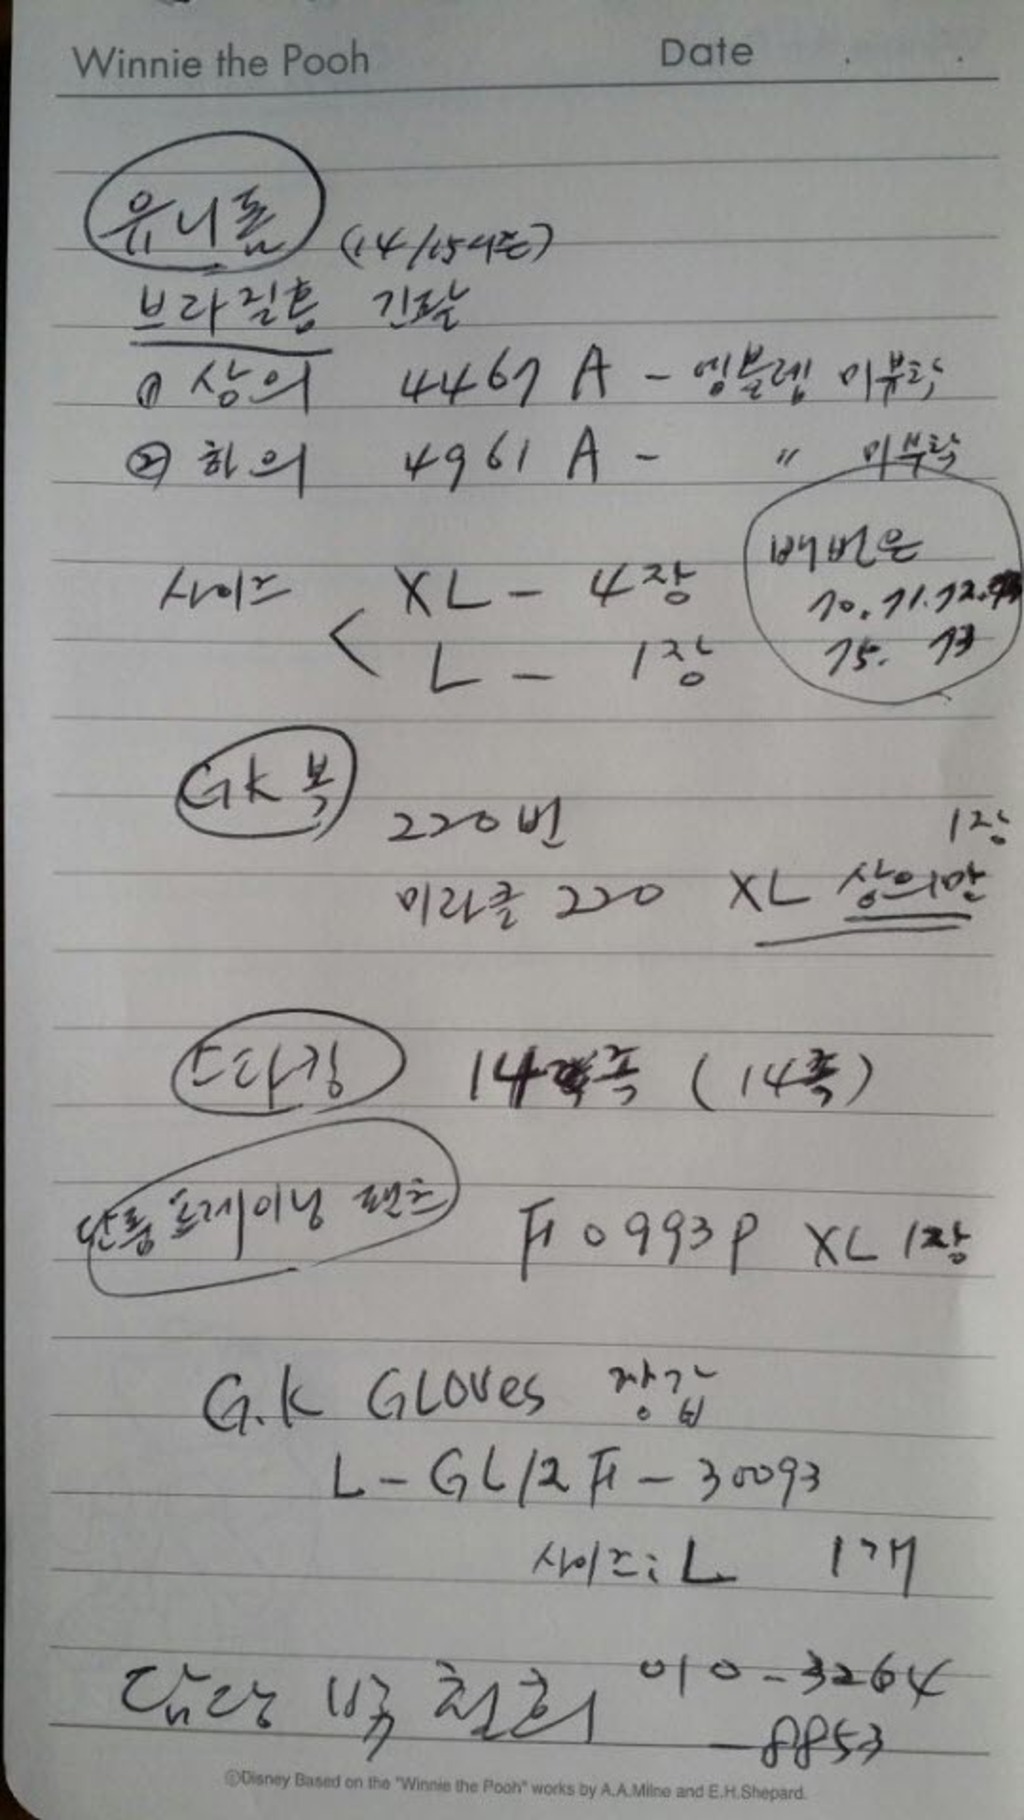 Winnie the Pooh Date . .
유니폼 (14/15시즌)
브라질홈 긴팔
① 상의 4467 A - 엠블렘 미부착
② 하의 4961 A - " 미부착
배번은
사이즈 < XL - 4장
70. 71. 72.
L - 1장
75. 73
GK 복
220번 1장
미라클 220 XL 상의만
스타킹 14족 (14족)
단품 트레이닝 팬츠
FI 0993P XL 1장
G.K GLOVES 장갑
L - GL12 FI - 30093
사이즈: L 1개
담당 박철희 010-3264
-8853
©Disney Based on the "Winnie the Pooh" works by A.A.Milne and E.H.Shepard.